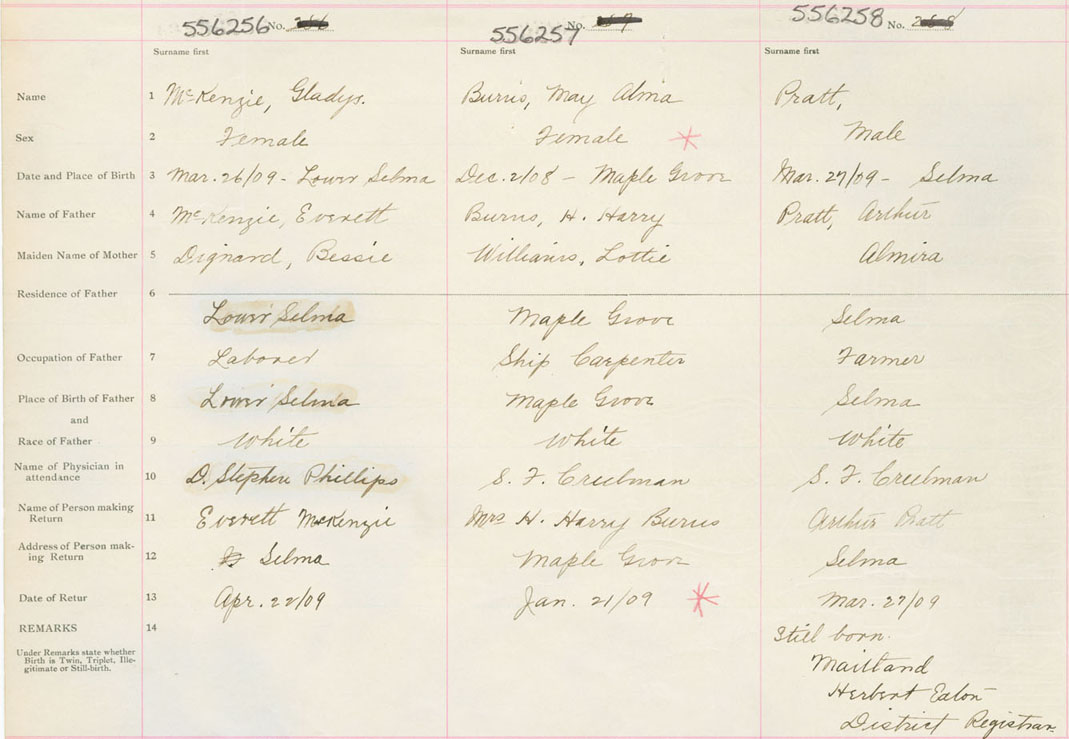 556256 No.
556257 No.
556258 No.
Surname first Surname first Surname first
Name 1 McKenzie, Gladys. Burns, May Alma Pratt,
Sex 2 Female Female * Male
Date and Place of Birth 3 Mar. 26/09 - Lower Selma Dec. 2/08 - Maple Grove Mar. 27/09 - Selma
Name of Father 4 McKenzie, Everett Burns, H. Harry Pratt, Arthur
Maiden Name of Mother 5 Dignard, Bessie Williams, Lottie Almira
Residence of Father 6
Lower Selma Maple Grove Selma
Occupation of Father 7 Laborer Ship Carpenter Farmer
Place of Birth of Father 8 Lower Selma Maple Grove Selma
and
Race of Father 9 White White White
Name of Physician in
attendance 10 D. Stephen Phillips S. F. Creelman S. F. Creelman
Name of Person making
Return 11 Everett McKenzie Mrs H. Harry Burns Arthur Pratt
Address of Person mak-
ing Return 12 Selma Maple Grove Selma
Date of Retur 13 Apr. 22/09 Jan. 21/09 * Mar. 27/09
REMARKS 14 Still born.
Under Remarks state whether
Birth is Twin, Triplet, Ille-
gitimate or Still-birth.
Maitland
Herbert Eaton
District Registrar.